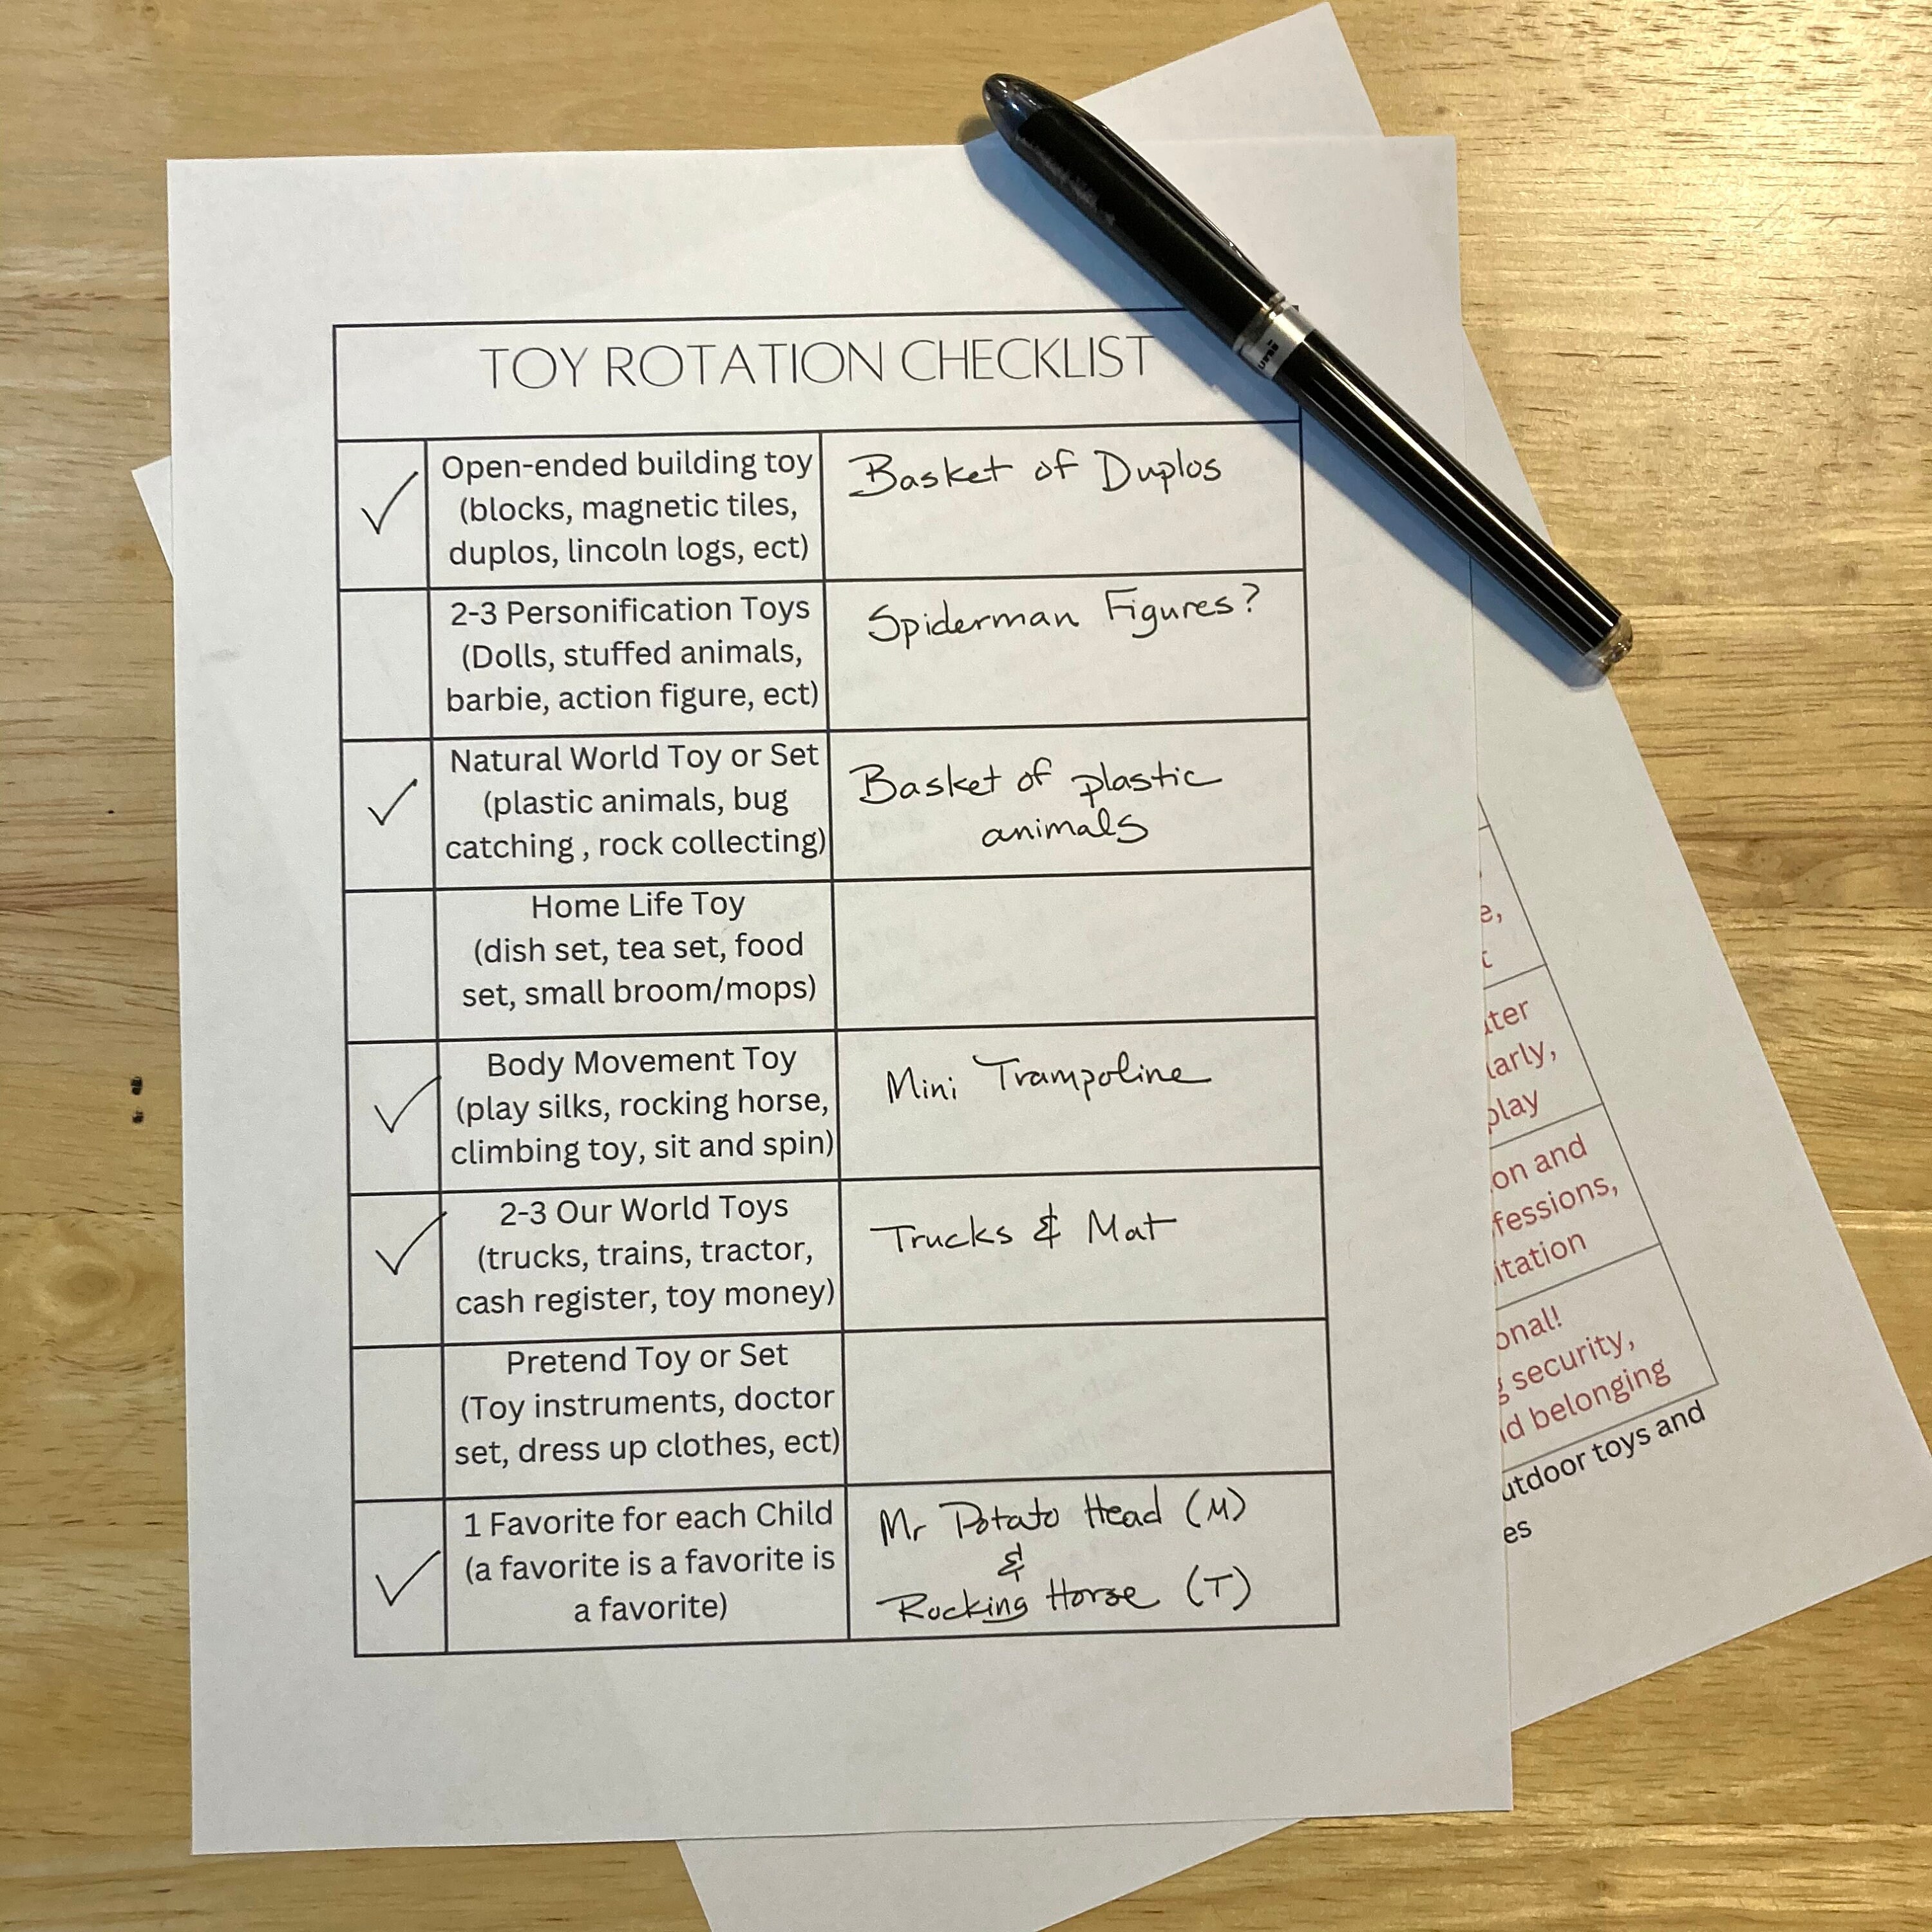 TOY ROTATION CHECKLIST
Open-ended building toy
(blocks, magnetic tiles,
duplos, lincoln logs, ect)
Basket of Duplos
2-3 Personification Toys
(Dolls, stuffed animals,
barbie, action figure, ect)
Spiderman Figures?
Natural World Toy or Set
(plastic animals, bug
catching , rock collecting)
Basket of plastic
animals
Home Life Toy
(dish set, tea set, food
set, small broom/mops)
Body Movement Toy
(play silks, rocking horse,
climbing toy, sit and spin)
Mini Trampoline
2-3 Our World Toys
(trucks, trains, tractor,
cash register, toy money)
Trucks & Mat
Pretend Toy or Set
(Toy instruments, doctor
set, dress up clothes, ect)
1 Favorite for each Child
(a favorite is a favorite is
a favorite)
Mr Potato Head (M)
&
Rocking Horse (T)
play
on and
security,
belonging
toys and